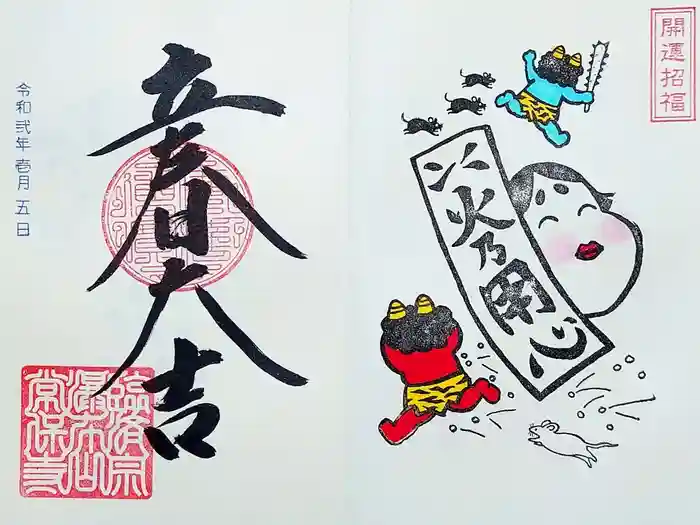 開運招福
火乃用心
立春大吉
令和弐年 壱月 五日
臨済宗
瀑布山
常保寺